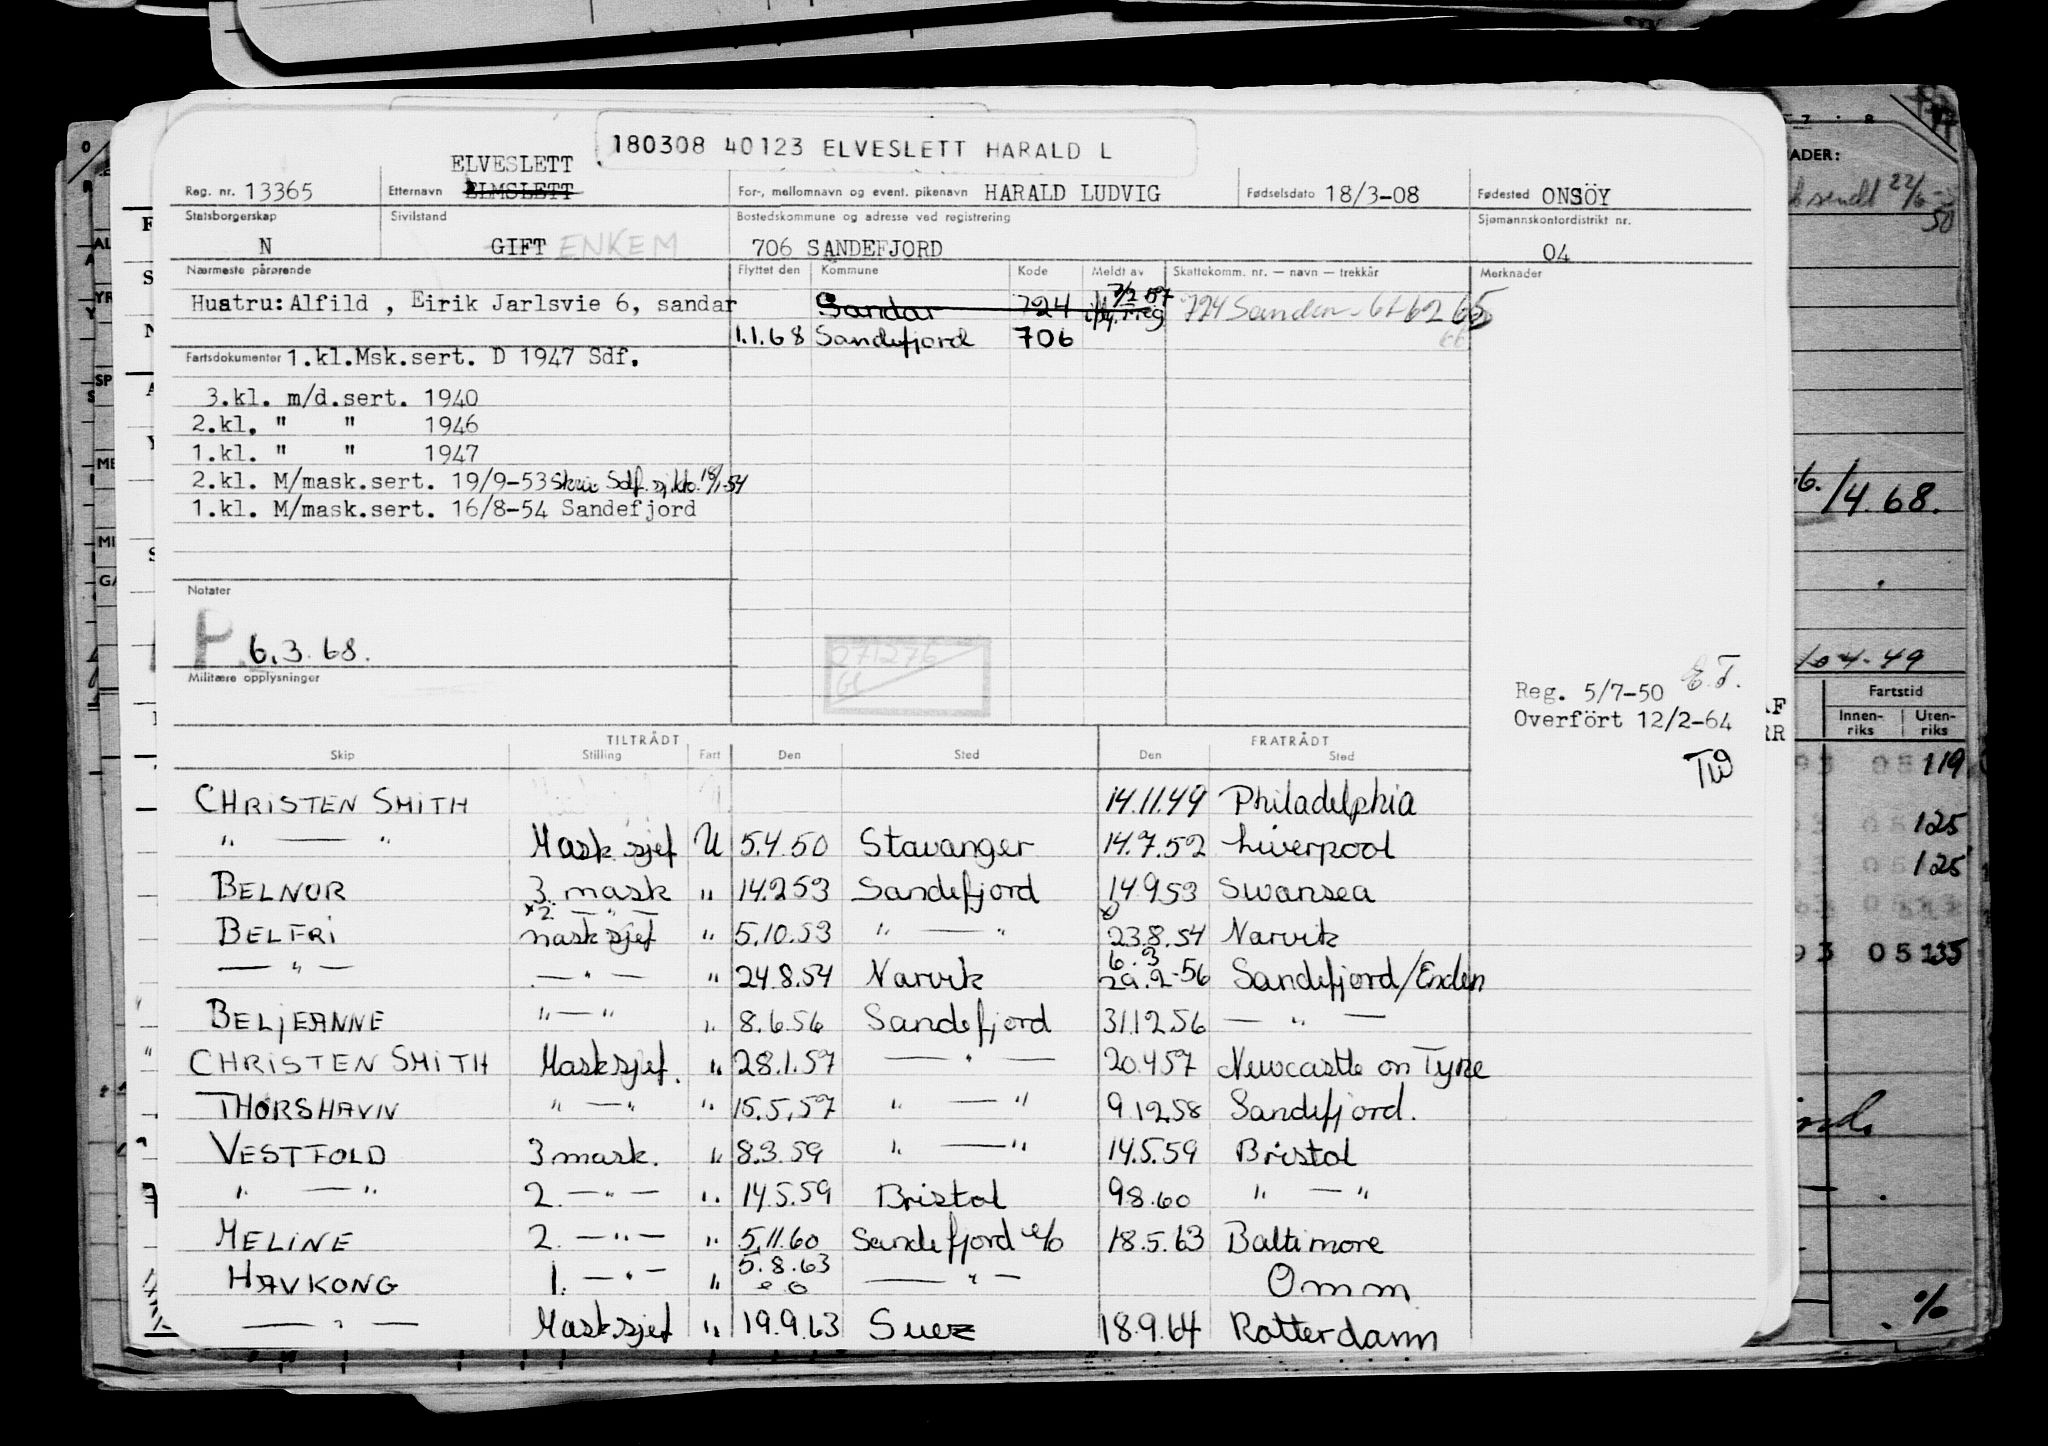 180308 40123 ELVESLETT HARALD L
ELVESLETT
Reg. nr. 13365 Etternavn ELMSLETT For-, mellomnavn og event. pikenavn HARALD LUDVIG Fødselsdato 18/3-08 Fødested ONSÖY
Statsborgerskap Sivilstand Bostedskommune og adresse ved registrering Sjømannskontordistrikt nr.
N GIFT ENKEM 706 SANDEFJORD 04
Nærmeste pårørende Flyttet den Kommune Kode Meldt av Skattekomm. nr. — navn — trekkår Merknader
Hustru: Alfild , Eirik Jarlsvie 6, sandar Sandar 724 7/2 57 724 Sandar - 61 62 65
1.1.68 Sandefjord 706
Fartsdokumenter 1.kl.Msk.sert. D 1947 Sdf.
3.kl. m/d.sert. 1940
2.kl. " " 1946
1.kl. " " 1947
2.kl. M/mask.sert. 19/9-53
1.kl. M/mask.sert. 16/8-54 Sandefjord
Notater
P. 6.3.68.
271276
Militære opplysninger
E.T.
Reg. 5/7-50
Overfört 12/2-64
TW
TILTRÅDT FRATRÅDT
Skip Stilling Fart Den Sted Den Sted
CHRISTEN SMITH 14.11.49 Philadelphia
" — " Mask sjef U 5.4.50 Stavanger 14.7.52 Liverpool
BELNOR 3. mask " 14.2 53 Sandefjord 14.9.53 Swansea
x 2. — " —
BELFRI mask sjef " 5.10.53 " — " 23.8.54 Narvik
6.3
— " — — " — " 24.8.54 Narvik 29.2-56 Sandefjord/Enden
BELJEANNE " — " " 8.6.56 Sandefjord 31.12.56 — " —
CHRISTEN SMITH Masksjef. " 28.1.57 — " — 20.4 57 Newcastle on Tyne
THORSHAVN " — " " 15.5.57 " — " 9.12.58 Sandefjord.
VESTFOLD 3 mask. " 8.3.59 " — " 14.5.59 Bristol
" — " 2. — " — " 14.5.59 Bristol 9 8.60 " — "
MELINE 2. — " — " 5.11.60 Sandefjord e/o 18.5.63 Baltimore
5.8.63
HAVKONG 1. — " — " e o — " — Omm
— " — Masksjef " 19.9.63 Suez 18.9.64 Rotterdam
ADER:
sendt 22/6-50
/4.68.
10 4-49
Fartstid
Innen-riks Uten-riks
119
125
125
93 05 135
%